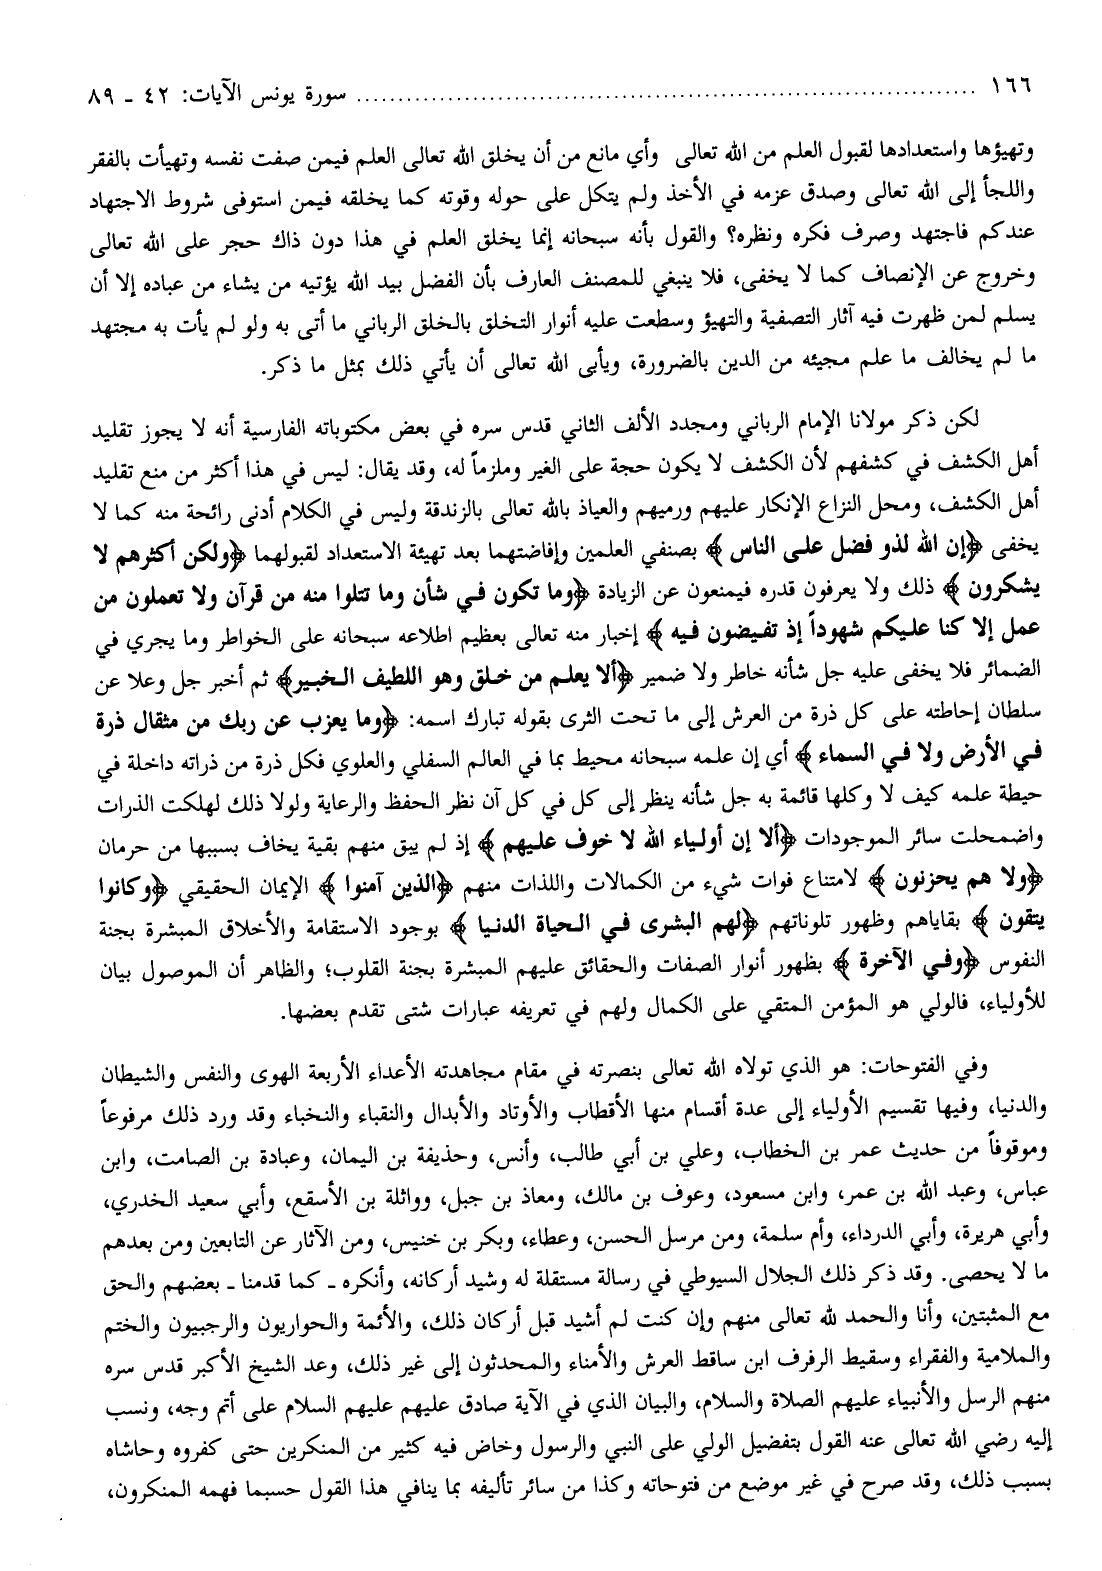 ١٦٦ ........................................................ سورة يونس الآيات: ٤٢ ـ ٨٩
وتهيؤها واستعدادها لقبول العلم من الله تعالى وأي مانع من أن يخلق الله تعالى العلم فيمن صفت نفسه وتهيأت بالفقر
واللجأ إلى الله تعالى وصدق عزمه في الأخذ ولم يتكل على حوله وقوته كما يخلقه فيمن استوفى شروط الاجتهاد
عندكم فاجتهد وصرف فكره ونظره؟ والقول بأنه سبحانه إنما يخلق العلم في هذا دون ذاك حجر على الله تعالى
وخروج عن الإنصاف كما لا يخفى، فلا ينبغي للمصنف العارف بأن الفضل بيد الله يؤتيه من يشاء من عباده إلا أن
يسلم لمن ظهرت فيه آثار التصفية والتهيؤ وسطعت عليه أنوار التخلق بالخلق الرباني ما أتى به ولو لم يأت به مجتهد
ما لم يخالف ما علم مجيئه من الدين بالضرورة، ويأبى الله تعالى أن يأتي ذلك بمثل ما ذكر.
لكن ذكر مولانا الإمام الرباني ومجدد الألف الثاني قدس سره في بعض مكتوباته الفارسية أنه لا يجوز تقليد
أهل الكشف في كشفهم لأن الكشف لا يكون حجة على الغير وملزماً له، وقد يقال: ليس في هذا أكثر من منع تقليد
أهل الكشف، ومحل النزاع الإنكار عليهم ورميهم والعياذ بالله تعالى بالزندقة وليس في الكلام أدنى رائحة منه كما لا
يخفى ﴿إن الله لذو فضل على الناس﴾ بصنفي العلمين وإفاضتهما بعد تهيئة الاستعداد لقبولهما ﴿ولكن أكثرهم لا
يشكرون﴾ ذلك ولا يعرفون قدره فيمنعون عن الزيادة ﴿وما تكون في شأن وما تتلوا منه من قرآن ولا تعملون من
عمل إلا كنا عليكم شهوداً إذ تفيضون فيه﴾ إخبار منه تعالى بعظيم اطلاعه سبحانه على الخواطر وما يجري في
الضمائر فلا يخفى عليه جل شأنه خاطر ولا ضمير ﴿ألا يعلم من خلق وهو اللطيف الخبير﴾ ثم أخبر جل وعلا عن
سلطان إحاطته على كل ذرة من العرش إلى ما تحت الثرى بقوله تبارك اسمه: ﴿وما يعزب عن ربك من مثقال ذرة
في الأرض ولا في السماء﴾ أي إن علمه سبحانه محيط بما في العالم السفلي والعلوي فكل ذرة من ذراته داخلة في
حيطة علمه كيف لا وكلها قائمة به جل شأنه ينظر إلى كل في كل آن نظر الحفظ والرعاية ولولا ذلك لهلكت الذرات
واضمحلت سائر الموجودات ﴿ألا إن أولياء الله لا خوف عليهم﴾ إذ لم يبق منهم بقية يخاف بسببها من حرمان
﴿ولا هم يحزنون﴾ لامتناع فوات شيء من الكمالات واللذات منهم ﴿الذين آمنوا﴾ الإيمان الحقيقي ﴿وكانوا
يتقون﴾ بقاياهم وظهور تلوناتهم ﴿لهم البشرى في الحياة الدنيا﴾ بوجود الاستقامة والأخلاق المبشرة بجنة
النفوس ﴿وفي الآخرة﴾ بظهور أنوار الصفات والحقائق عليهم المبشرة بجنة القلوب؛ والظاهر أن الموصول بيان
للأولياء، فالولي هو المؤمن المتقي على الكمال ولهم في تعريفه عبارات شتى تقدم بعضها.
وفي الفتوحات: هو الذي تولاه الله تعالى بنصرته في مقام مجاهدته الأعداء الأربعة الهوى والنفس والشيطان
والدنيا، وفيها تقسيم الأولياء إلى عدة أقسام منها الأقطاب والأوتاد والأبدال والنقباء والنخباء وقد ورد ذلك مرفوعاً
وموقوفاً من حديث عمر بن الخطاب، وعلي بن أبي طالب، وأنس، وحذيفة بن اليمان، وعبادة بن الصامت، وابن
عباس، وعبد الله بن عمر، وابن مسعود، وعوف بن مالك، ومعاذ بن جبل، وواثلة بن الأسقع، وأبي سعيد الخدري،
وأبي هريرة، وأبي الدرداء، وأم سلمة، ومن مرسل الحسن، وعطاء، وبكر بن خنيس، ومن الآثار عن التابعين ومن بعدهم
ما لا يحصى. وقد ذكر ذلك الجلال السيوطي في رسالة مستقلة له وشيد أركانه، وأنكره ـ كما قدمنا ـ بعضهم والحق
مع المثبتين، وأنا والحمد لله تعالى منهم وإن كنت لم أشيد قبل أركان ذلك، والأئمة والحواريون والرجبيون والختم
والملامية والفقراء وسقيط الرفرف ابن ساقط العرش والأمناء والمحدثون إلى غير ذلك، وعد الشيخ الأكبر قدس سره
منهم الرسل والأنبياء عليهم الصلاة والسلام، والبيان الذي في الآية صادق عليهم عليهم السلام على أتم وجه، ونسب
إليه رضي الله تعالى عنه القول بتفضيل الولي على النبي والرسول وخاض فيه كثير من المنكرين حتى كفروه وحاشاه
بسبب ذلك، وقد صرح في غير موضع من فتوحاته وكذا من سائر تأليفه بما ينافي هذا القول حسبما فهمه المنكرون،